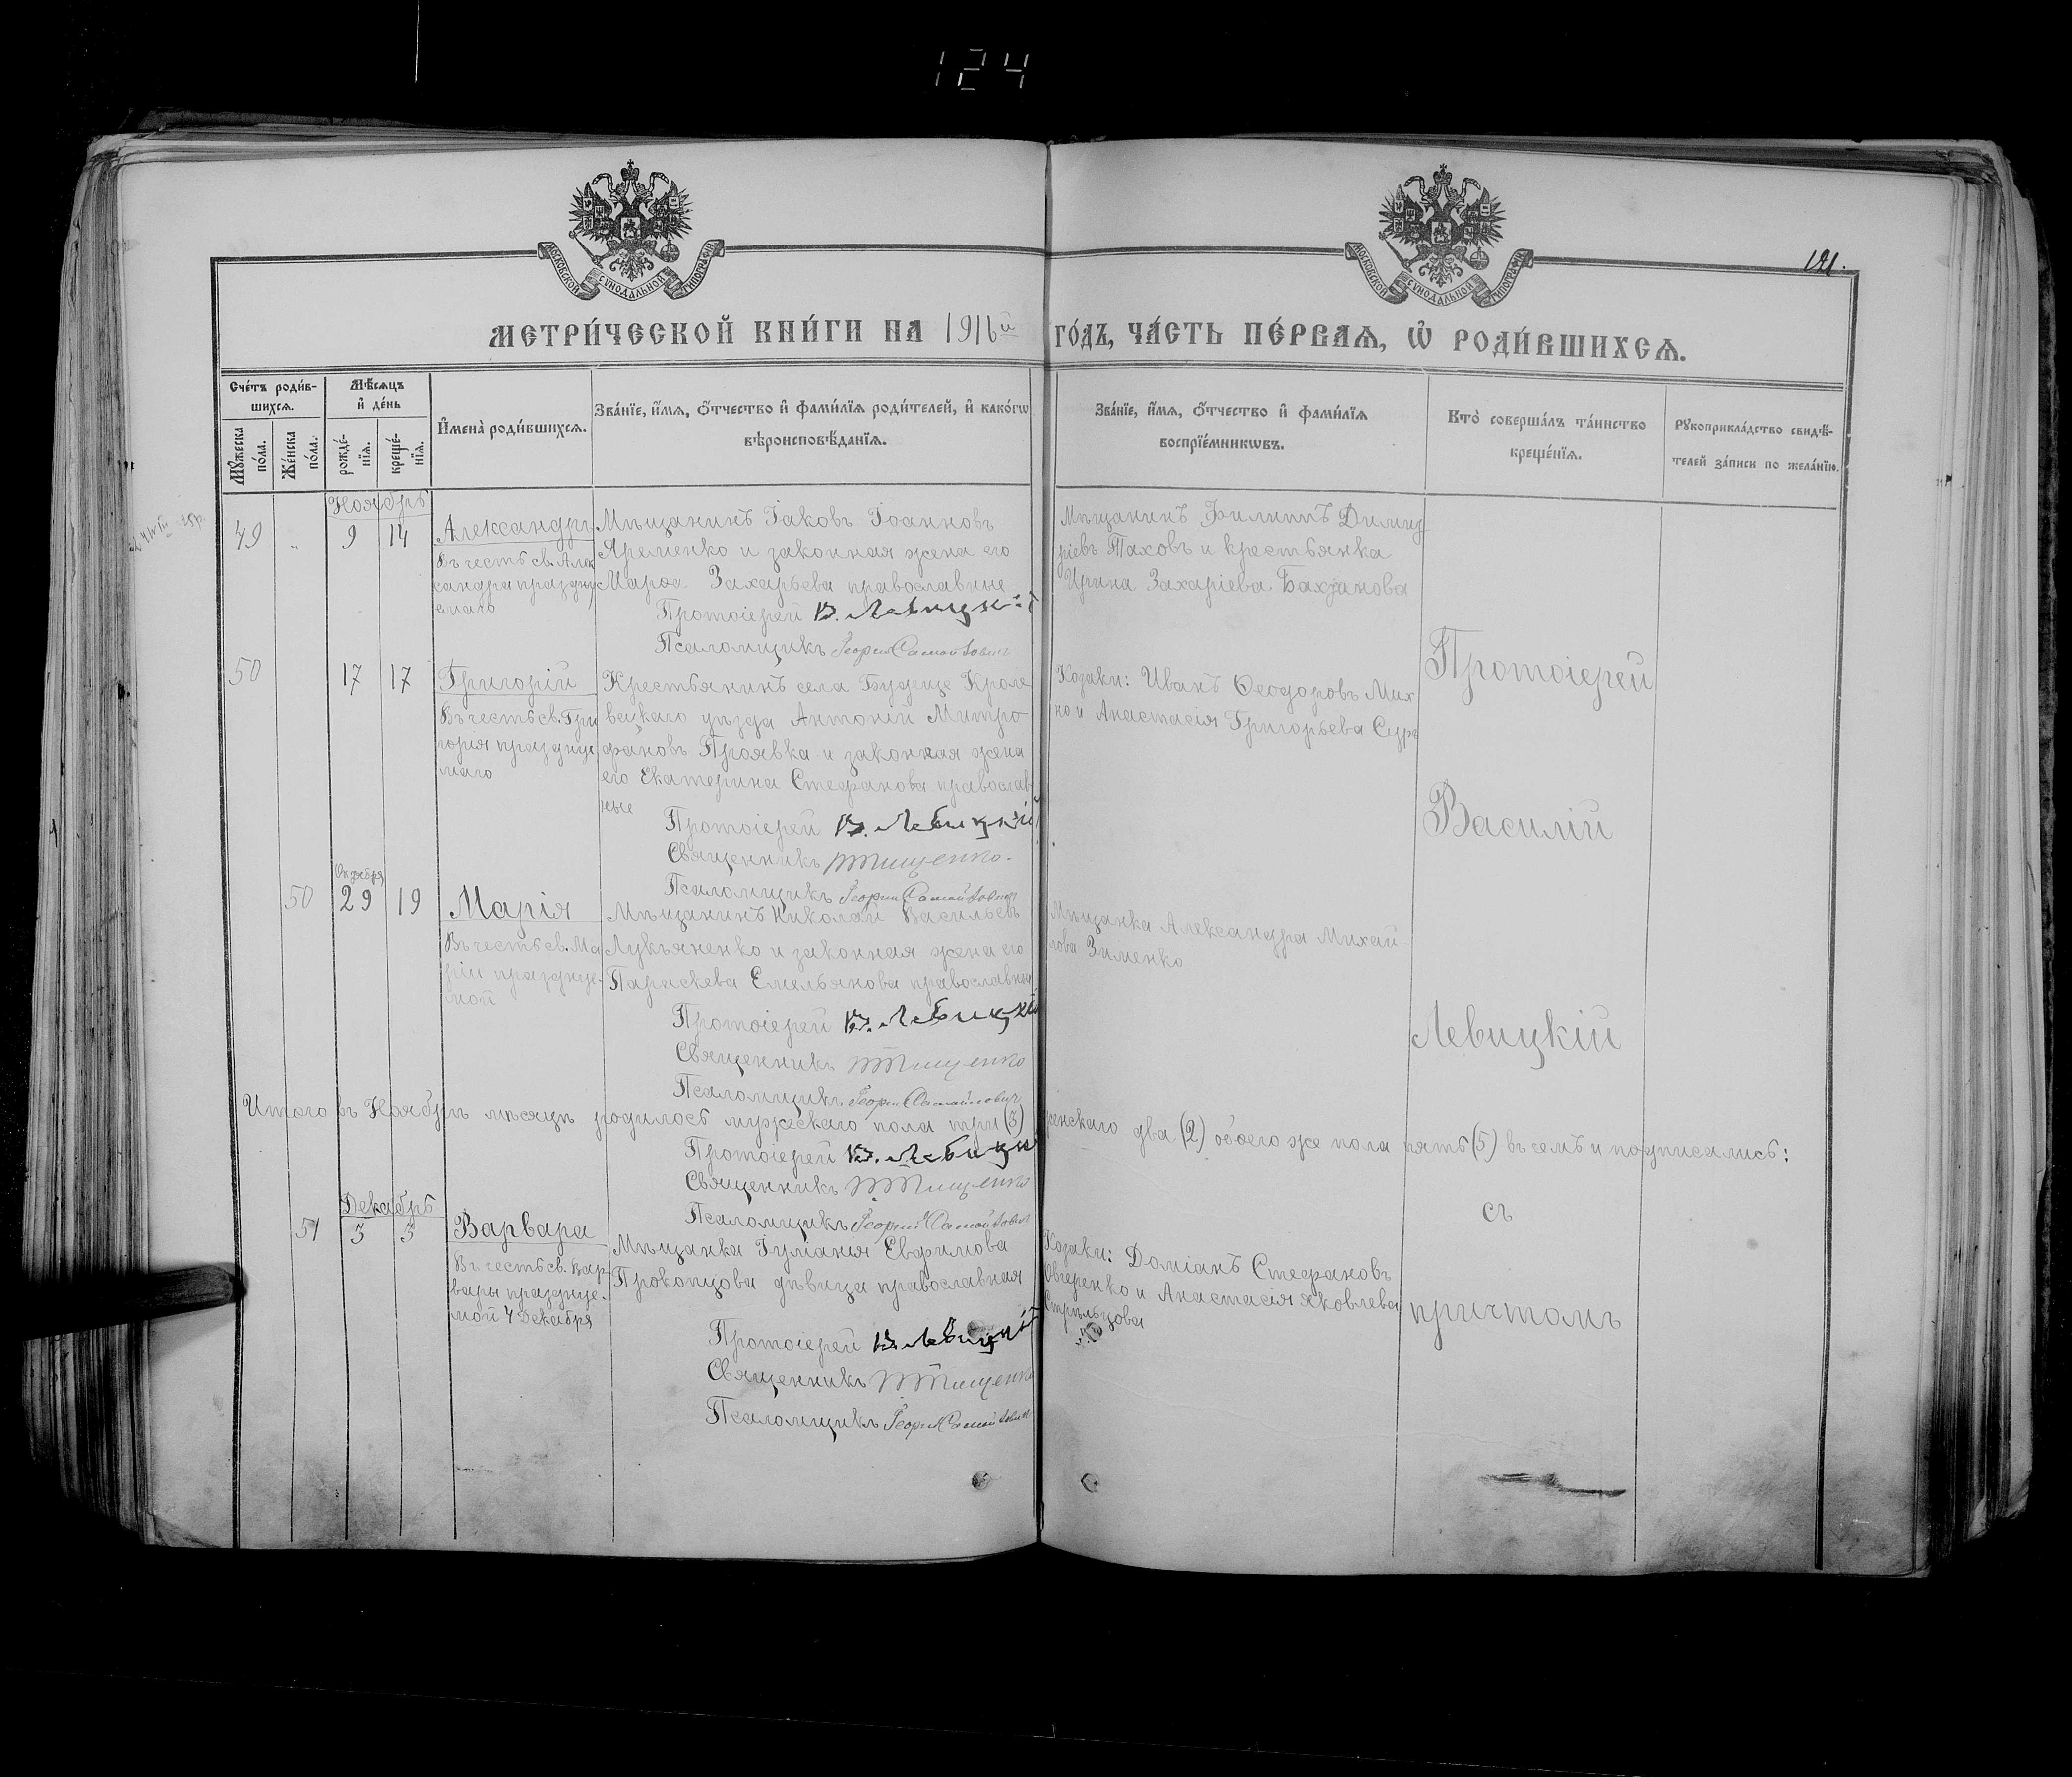 124
МОСКОВСКОЙ СѴНОДАЛЬНОЙ ТИПОГРАФІИ
МОСКОВСКОЙ СѴНОДАЛЬНОЙ ТИПОГРАФІИ
121.
МЕТРИ́ЧЕСКОЙ КНИ́ГИ НА 1916й ГО́ДЪ, ЧА́СТЬ ПЕ́РВАѦ, Ѡ҆ РОДИ́ВШИХСѦ.
Сче́тъ роди́в-
шихсѧ.
Мꙋжеска по́ла.
Же́нска по́ла.
Мѣ́сѧцъ и҆ де́нь
рожде́-нїѧ.
креще́-нїѧ.
И҆мена̀ роди́вшихсѧ.
Зва́нїе, и҆́мѧ, ѻ҆́тчество и҆ фами́лїѧ роди́телей, и҆ како́гѡ
вѣроисповѣ́данїѧ.
Зва́нїе, и҆́мѧ, ѻ҆́тчество и҆ фами́лїѧ
воспрїе́мникѡвъ.
Кто̀ соверша́лъ та́инство
креще́нїѧ.
Рꙋкоприкла́дство свидѣ́-
телей за́писи по жела́нїю.
Ноябрь
49 " 9 14
Александръ
Въ честь св. Алек
сандра праздну
емаго
Мѣщанинъ Іаковъ Іоанновъ
Яременко и законная жена его
Марѳа Захарьева православные
Протоіерей В. Левицкій
Псаломщикъ Георгій Самойловичъ
Мѣщанинъ Филиппъ Димит
ріевъ Таховъ и крестьянка
Ирина Захаріева
50 17 17
Григорій
Въ честь св. Гри
горія праздну
маго
Крестьянинъ села Кроле
вецкаго уѣзда Антоній Митро
фановъ Проявка и законная жена
его Екатерина Стефанова православ
ные
Протоіерей В. Левицкій
Священникъ Тищенко.
Псаломщикъ Георгій Самойловичъ
Козаки: Иванъ Ѳеодоровъ Мих
но и Анастасія Григорьева
Октября
50 29 19
Марія
Въ честь св. Ма
ріи праздну
мой
Мѣщанинъ Николай Васильевъ
Лукьяненко и законная жена его
Параскева Емельянова православные
Протоіерей В. Левицкій
Священникъ Тищенко
Псаломщикъ Георгій Самойловичъ
Мѣщанка Александра Михай
лова Зименко
Итого въ Ноябрѣ мѣсяцѣ родилось мужескаго пола три (3) женскаго два (2) обоего же пола пять (5) въ чемъ и подписались:
Протоіерей В. Левицкій
Священникъ Тищенко
Псаломщикъ Георгій Самойловичъ
Декабрь
51 3 3
Варвара
Въ честь св. Вар
вары праздну
мой 4 Декабря
Мѣщанка Іуліанія Евфимова
Прокопцова дѣвица православная
Протоіерей В. Левицкій
Священникъ Тищенко
Псаломщикъ Георгій Самойловичъ
Козаки: Доміанъ Стефановъ
Овчеренко и Анастасія Яковлева
Стрѣльцова
Протоіерей
Василій
Левицкій
съ
причтомъ